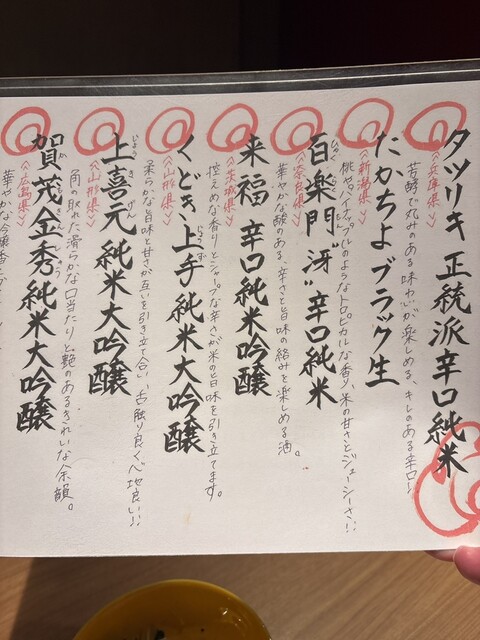 タツリキ 正統派辛口純米
《兵庫県》
芳醇で丸みのある味わいが楽しめる、キレのある辛口!
たかちよブラック生
《新潟県》
桃やパイナップルのようなトロピカルな香り、米の甘さとジューシーさ!!
百楽門"冴"辛口純米
《奈良県》
華やかな酸のある、辛さと旨味の絡みを楽しめる酒。
来福 辛口純米吟醸
《茨城県》
控えめな香りとシャープな辛さが米の旨味を引き立てます。
くどき上手 純米大吟醸
じょうず
《山形県》
柔らかな旨味と甘さが互いを引き立て合い、舌触り良く心地良い!!
上喜元 純米大吟醸
じょうきげん
《山形県》
角の取れた滑らかな口当たりと艶のあるきれいな余韻。
賀茂金秀 純米大吟醸
かもきんしゅう
《広島県》
華やかな吟醸香と